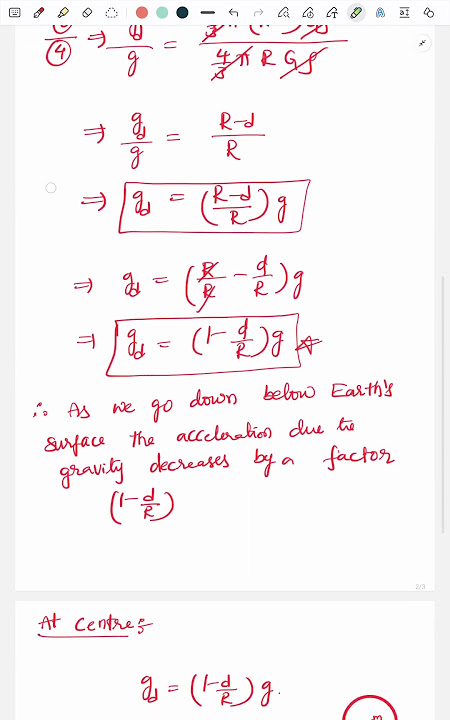 ④ ⇒ gd/g = 4/3 π R G ρ
⇒ gd/g = R-d/R
⇒ gd = (R-d/R) g
⇒ gd = (R/R - d/R) g
⇒ gd = (1- d/R) g
∴ As we go down below Earth's
surface the acceleration due to
gravity decreases by a factor
(1- d/R)
2/3
At Centre:-
gd = (1- d/R) g.
m